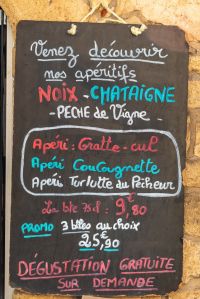 Venez découvrir
nos apéritifs
NOIX - CHATAIGNE
- PECHE de Vigne -
Apéri : Gratte-cul
Apéri CouCougnette
Apéri Turlutte du Pêcheur
La ble 75cl : 9€,80
PROMO 3 blles au choix
25€,90
DÉGUSTATION GRATUITE
SUR DEMANDE